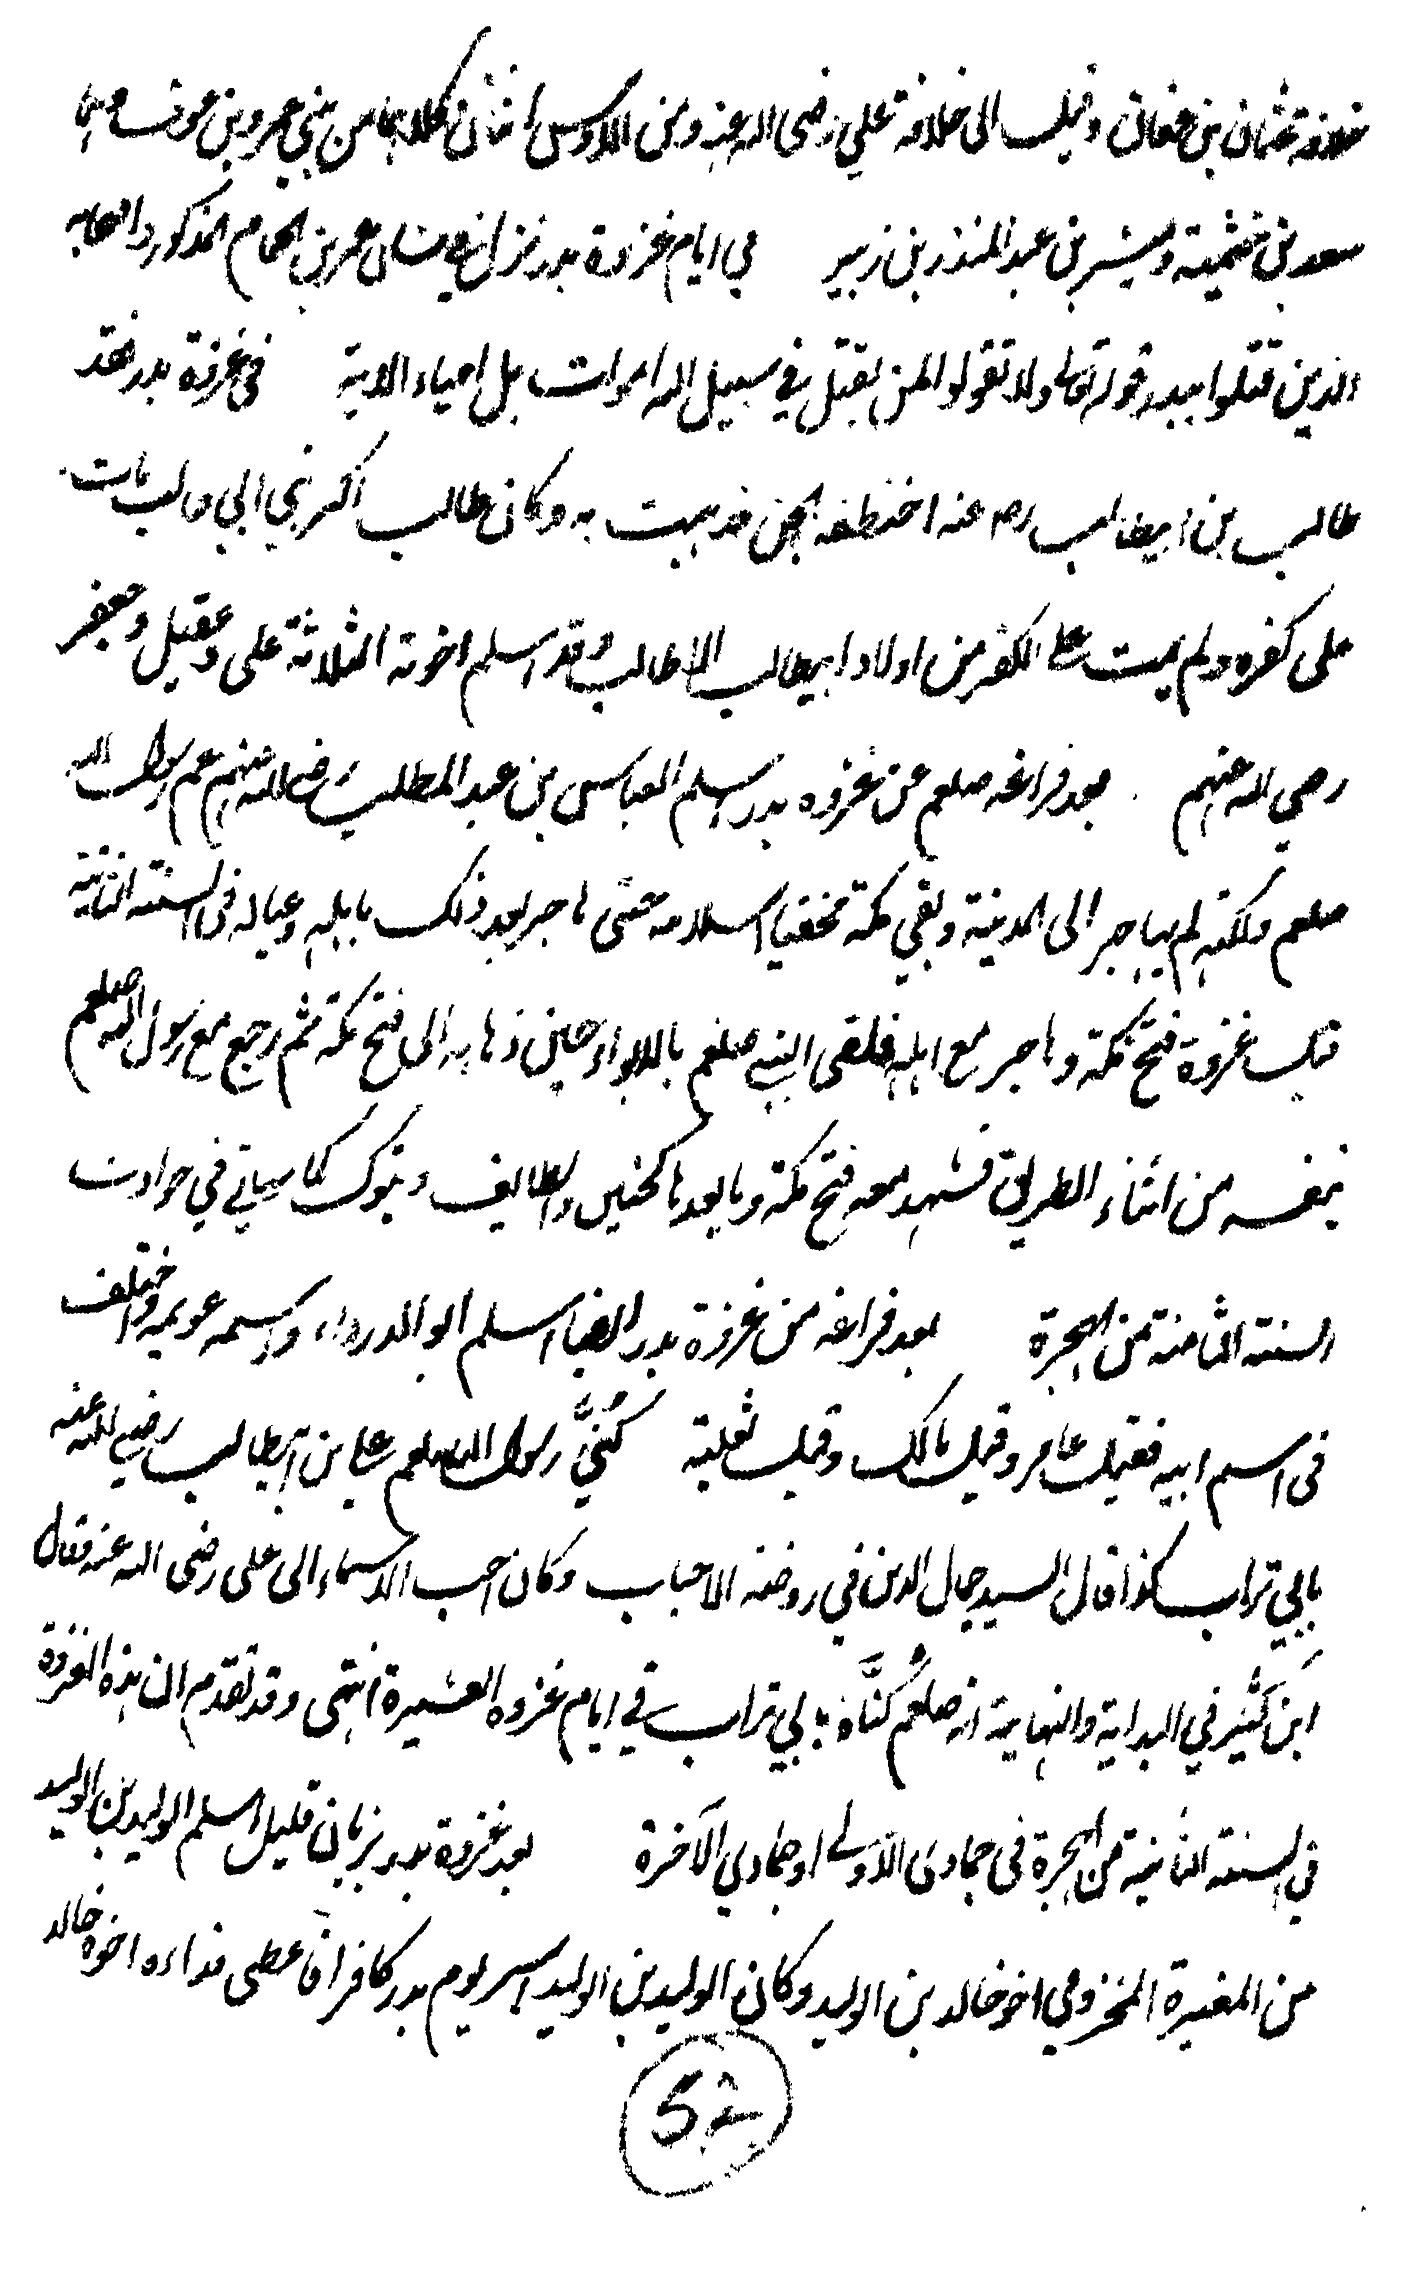 خلافة عثمان بن عفان وقيل الى خلافة علي رضى الله عنه ومن الاوس اثنان كلاهما من بني عمرو بن عوف وهما
سعد بن خثيمة ومبشر بن عبد المنذر بن زبير في ايام غزوة بدر نزل في شان عمير بن الحمام المذكور واصحابه
الذين قتلوا ببدر قوله تعالى ولا تقولوا لمن يقتل في سبيل الله اموات بل احياء الاية في غزوة بدر فقد
طالب بن ابيطالب رضه عنه اختطفه الجن فذهبت به وكان طالب اكبر بني ابي طالب مات
على كفره ولم يمت على الكفر من اولاد ابيطالب الا طالب وقد اسلم اخوته الثلاثة على وعقيل وجعفر
رضي الله عنهم بعد فراغه صلعم عن غزوه بدر اسلم العباس بن عبد المطلب رضي الله عنهم عم رسول الله
صلعم ولكنه لم يهاجر الى المدينة وبقي بمكة مخفيا اسلامه حتى هاجر بعد ذلك باهله وعياله فى السنة الثامنة
قبل غزوة فتح مكة وهاجر مع اهله فلقى النبي صلعم بالابواء حين ذهابه الى فتح مكة ثم رجع مع رسول الله صلعم
بنفسه من اثناء الطريق فشهد معه فتح مكة وما بعدها كحنين والطايف وتبوك كما سياتي في حوادث
السنة الثامنة من الهجرة بعد فراغه من غزوة بدر ايضا اسلم ابو الدرداء واسمه عويمر واختلف
فى اسم ابيه فقيل عامر وقيل مالك وقيل ثعلبة كُنيَّ رسول الله صلعم علي بن ابيطالب رضي الله عنه
بابي تراب كذا قال السيد جمال الدين في روضة الاحباب وكان احب الاسماء الى على رضى الله عنه وقال
ابن كثير في البداية والنهاية انه صلعم كنَّاه بابي تراب في ايام غزوه العشيرة انتهى وقد تقدم ان هذه الغزوة
في السنة الثانية من الهجرة فى جمادى الاولى او جمادي الآخرة بعد غزوة بدر بزمان قليل اسلم الوليد بن الوليد
من المغيرة المخزومي اخو خالد بن الوليد وكان الوليد بن الوليد اسر يوم بدر كافرا فاعطى فداءه اخوه خالد